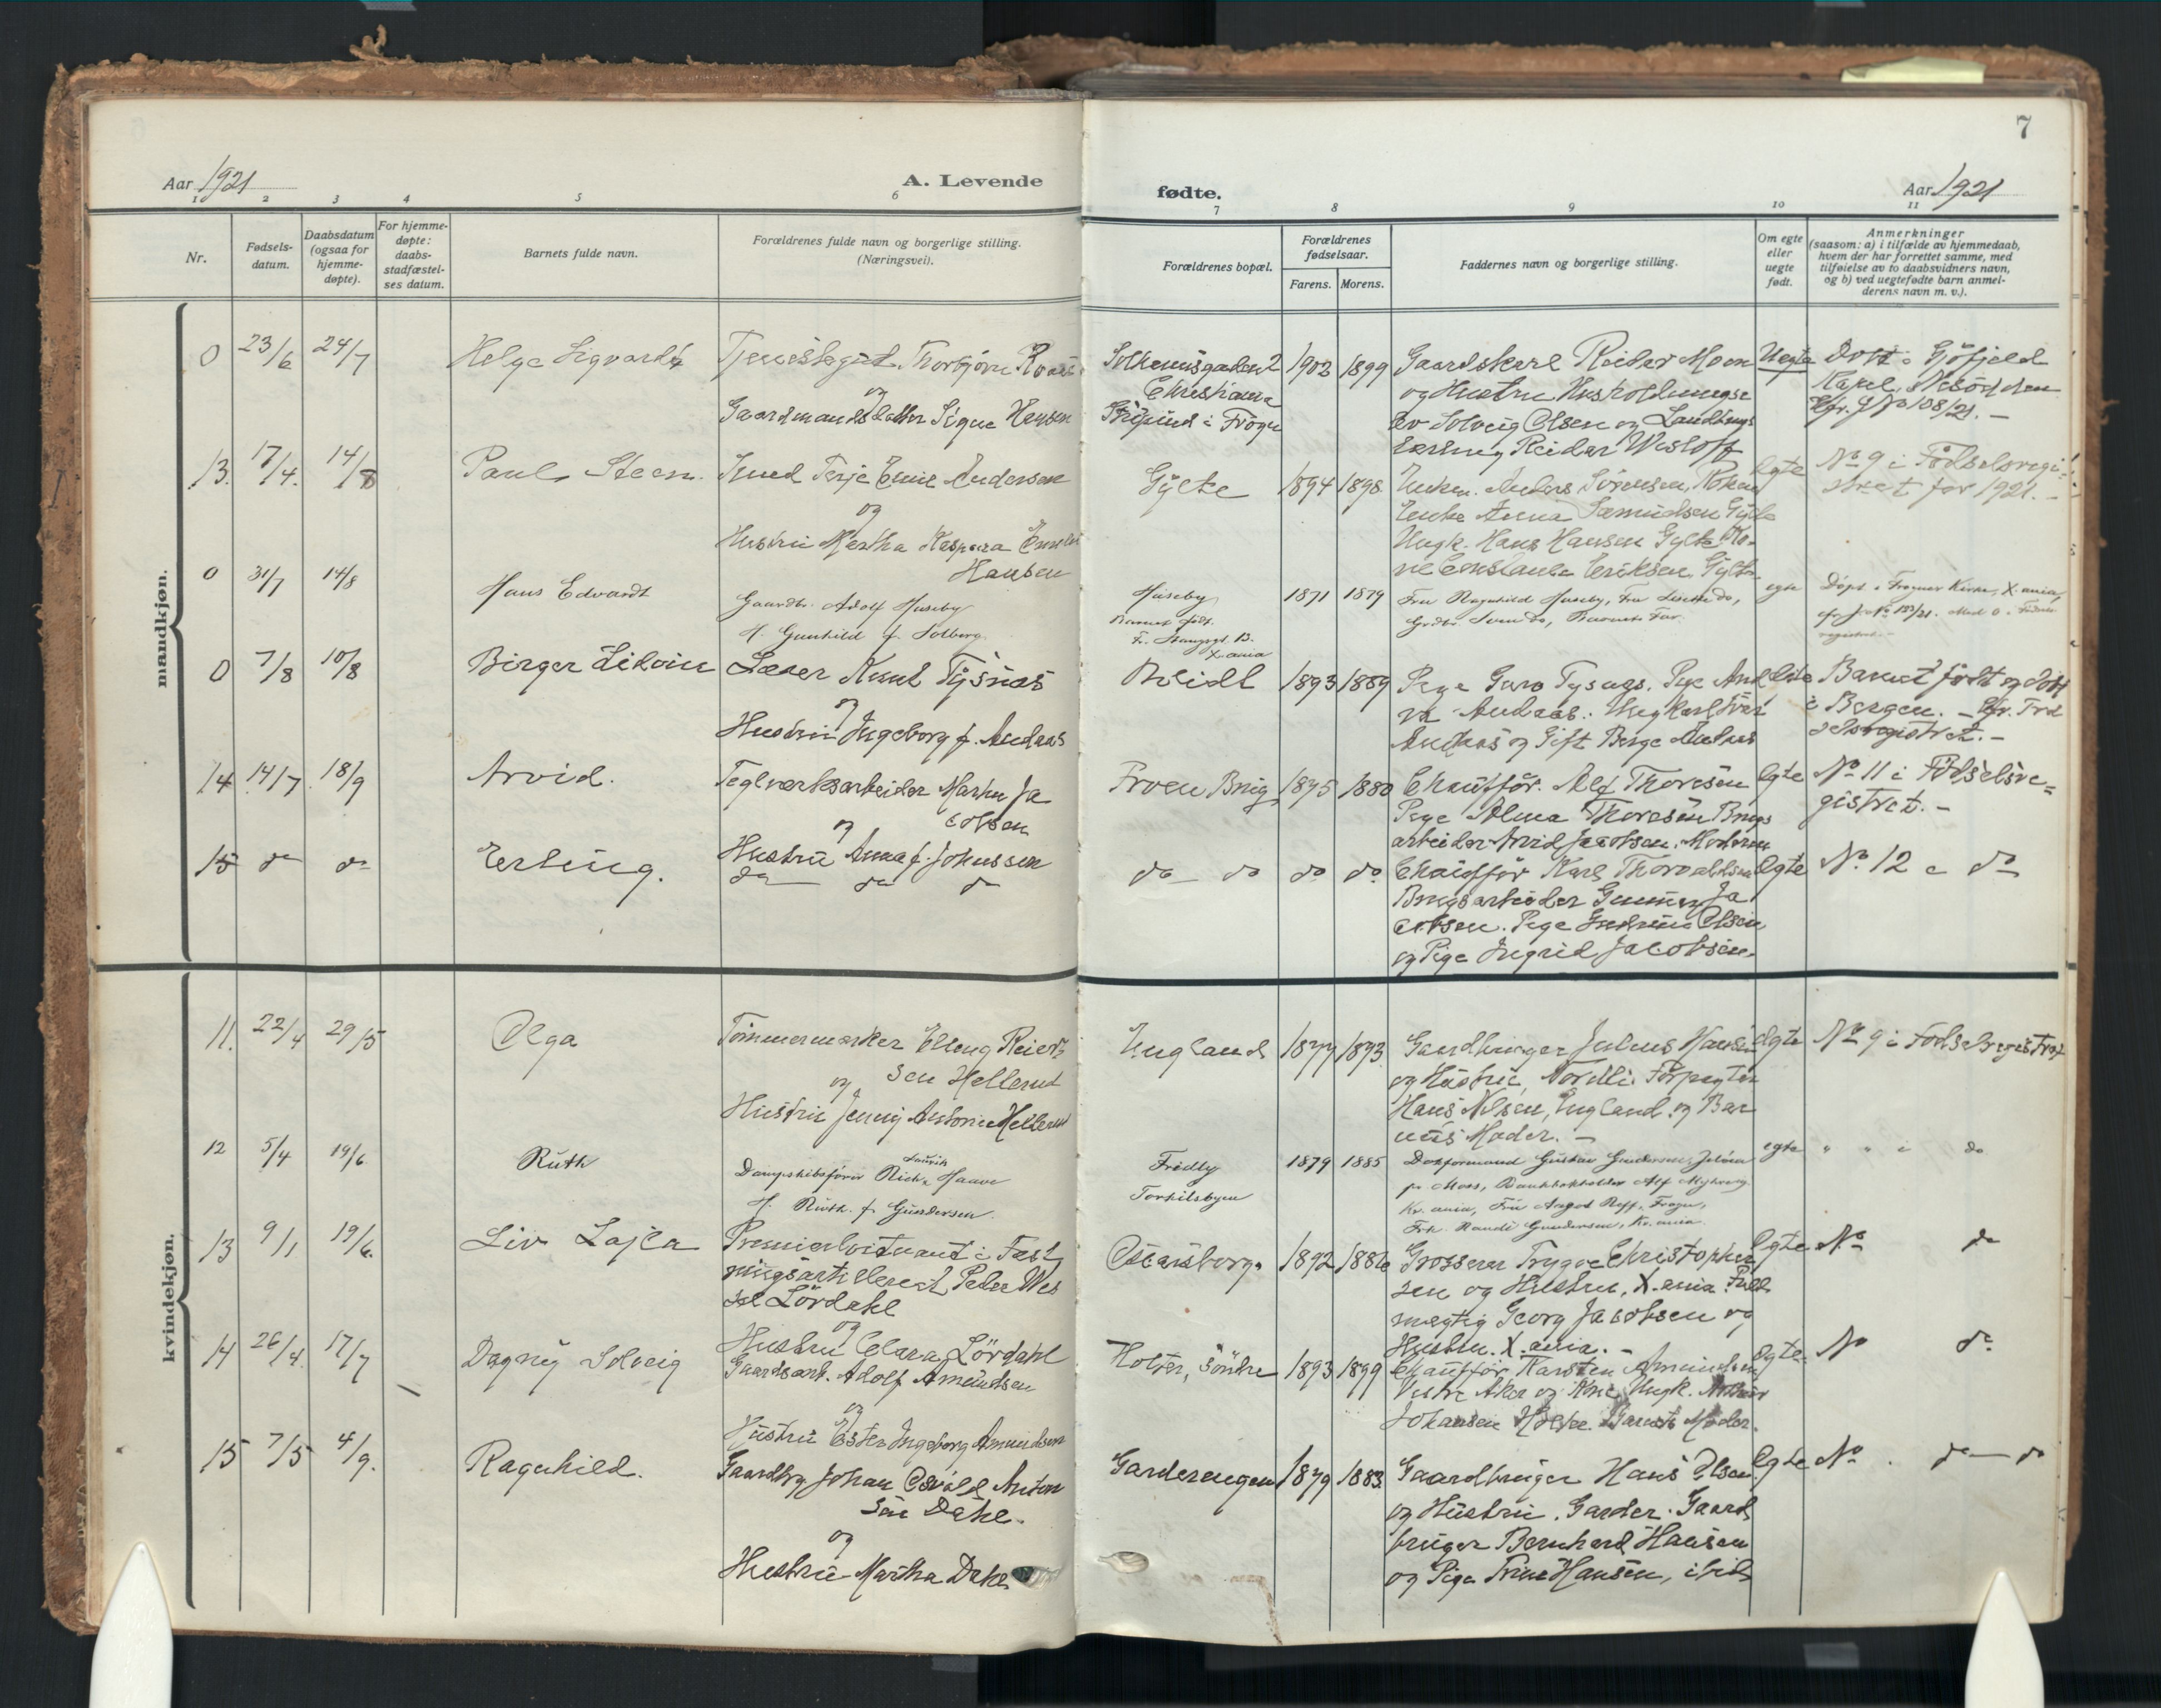 7
Aar 1921
A. Levende
fødte.
Aar 1921
1 2 3 4 5 6 7 8 9 10 11
Nr.
Fødsels-
datum.
Daabsdatum
(ogsaa for
hjemme-
døpte).
For hjemme-
døpte:
daabs-
stadfæstel-
ses datum.
Barnets fulde navn.
Forældrenes fulde navn og borgerlige stilling.
(Næringsvei).
Forældrenes bopæl.
Forældrenes
fødselsaar.
Farens. Morens.
Faddernes navn og borgerlige stilling.
Om egte
eller
uegte
født.
Anmerkninger
(saasom: a) i tilfælde av hjemmedaab,
hvem der har forrettet samme, med
tilføielse av to daabsvidners navn,
og b) ved uegtefødte barn anmel-
derens navn m. v.).
mandkjøn.
0 23/6 24/7
Helge Sigvard
Tjenestegut Thorbjørn
og
Gaardmandsdatter Signe Hansen
Christiania
i Frogn
1902 1899
Gaardskarl Reidar Moen
og Hustru
Solveig Olsen og
Reidar
Uegte
Døbt i Gjöfjeld
Kapel, Nesodden
Cfr. J No 108/21. -
13. 17/4. 14/8
Paul Steen.
Smed Terje Emil Andersen
og
Hustru Martha Kaspara
Hansen
Gylte
1894 1898
Enkem. Anders Sörensen,
Enke Anna Gylte
Ungk. Hans Hansen Gylte
Eriksen, Gylte
Egte
No 9 i Födselsregi-
stret for 1921. -
0 31/7 14/8
Hans Edvardt
Gaardbr. Adolf Huseby
H. Gunhild f. Solberg.
Huseby
Barnet født
X.ania
1871 1879
Fru Ragnhild Huseby, Fru do,
Grdbr. Svend do, Barnets Far.
egte
Døpt i Frogner Kirke, X.ania,
0 7/8 10/8
Birger Edvin
Læser Knut Tysnes
og
Hustru Ingeborg f. Andaas
1893 1889
Pige Guro Tysnes. Pige
Andaas. Ungkarl Ivar
Andaas og Gift Berge Andaas
Barnet født og døbt
i Bergen. - Cfr. Fød
selsregistret. -
14 14/7 18/9
Arvid.
Teglverksarbeider Martin Ja
cobsen
og
Hustru Anna f. Johnssen
Froen Brug
1875 1880
Chauffør. Alf Thoresen
Pige Alma Thoresen Brugs
arbeider Arvid Jacobsen. Moderen
Egte
No 11 i Födselsre=
gistret. -
15 do do
Erling.
do do do
do do do do
Chauffør Karl Thorvaldsen
Brugsarbeider Gunnar Ja
cobsen. Pige Gudrun Olsen
og Pige Ingrid Jacobsen.
Egte
No. 12 do
kvindekjøn.
11. 22/4 29/5
Olga
Tömmermærker Elling Reiert
sen Hellerud
og
Hustru Jenny Antonie Hellerud
England
1877 1893
Gaardbruger Julius Hansen
og Hustru, Nordli. Forpagter
Hans Nilsen, England. og Bar
nets Moder. -
Egte
No 9 i Fødselsregistret
12 5/4 19/6
Ruth
Dampskibsfører Haave
H. Ruth. f. Gundersen.
Fredly
Torkilsbyen
1879 1885
Dokformand Gustav Gundersen, Jeløen
pr. Moss, Bankbokholder Alf
Kr.ania, Fru Aagot Frogn,
Frk. Randi Gundersen, Kr.ania.
egte
" " i do
13 9/1 19/6.
Liv Lajla
Premierløitnant i Fæst
ningsartilleriet Peder Wes
sel Lördahl
og
Hustru Clara Lördahl
Oscarsborg.
1892 1886
Grosserer Trygve Christopher
sen og Hustru, X.ania. Fuld
mægtig Georg Jacobsen og
Hustru. X.ania. -
Egte
No do
14 26/4. 17/7
Dagny Solveig
Gaardsarb. Adolf Amundsen
og
Hustru Ester Ingeborg Amundsen
Holter, Söndre
1893 1899
Chauffør Karsten Amundsen
Vestre Aker og Kone, Ungk.
Johansen Barnets Moder.
Egte.
No do
15 7/5 4/9.
Ragnhild.
Gaardbr Johan Osvald Anton
sen Dahl.
og
Hustru Martha Dahl
Garderengen
1879 1883.
Gaardbruger Hans Olsen
og Hustru. Garder. Gaard
bruger Bernhard Hansen
og Pige Trine Hansen, ibid
Egte
No . do - do